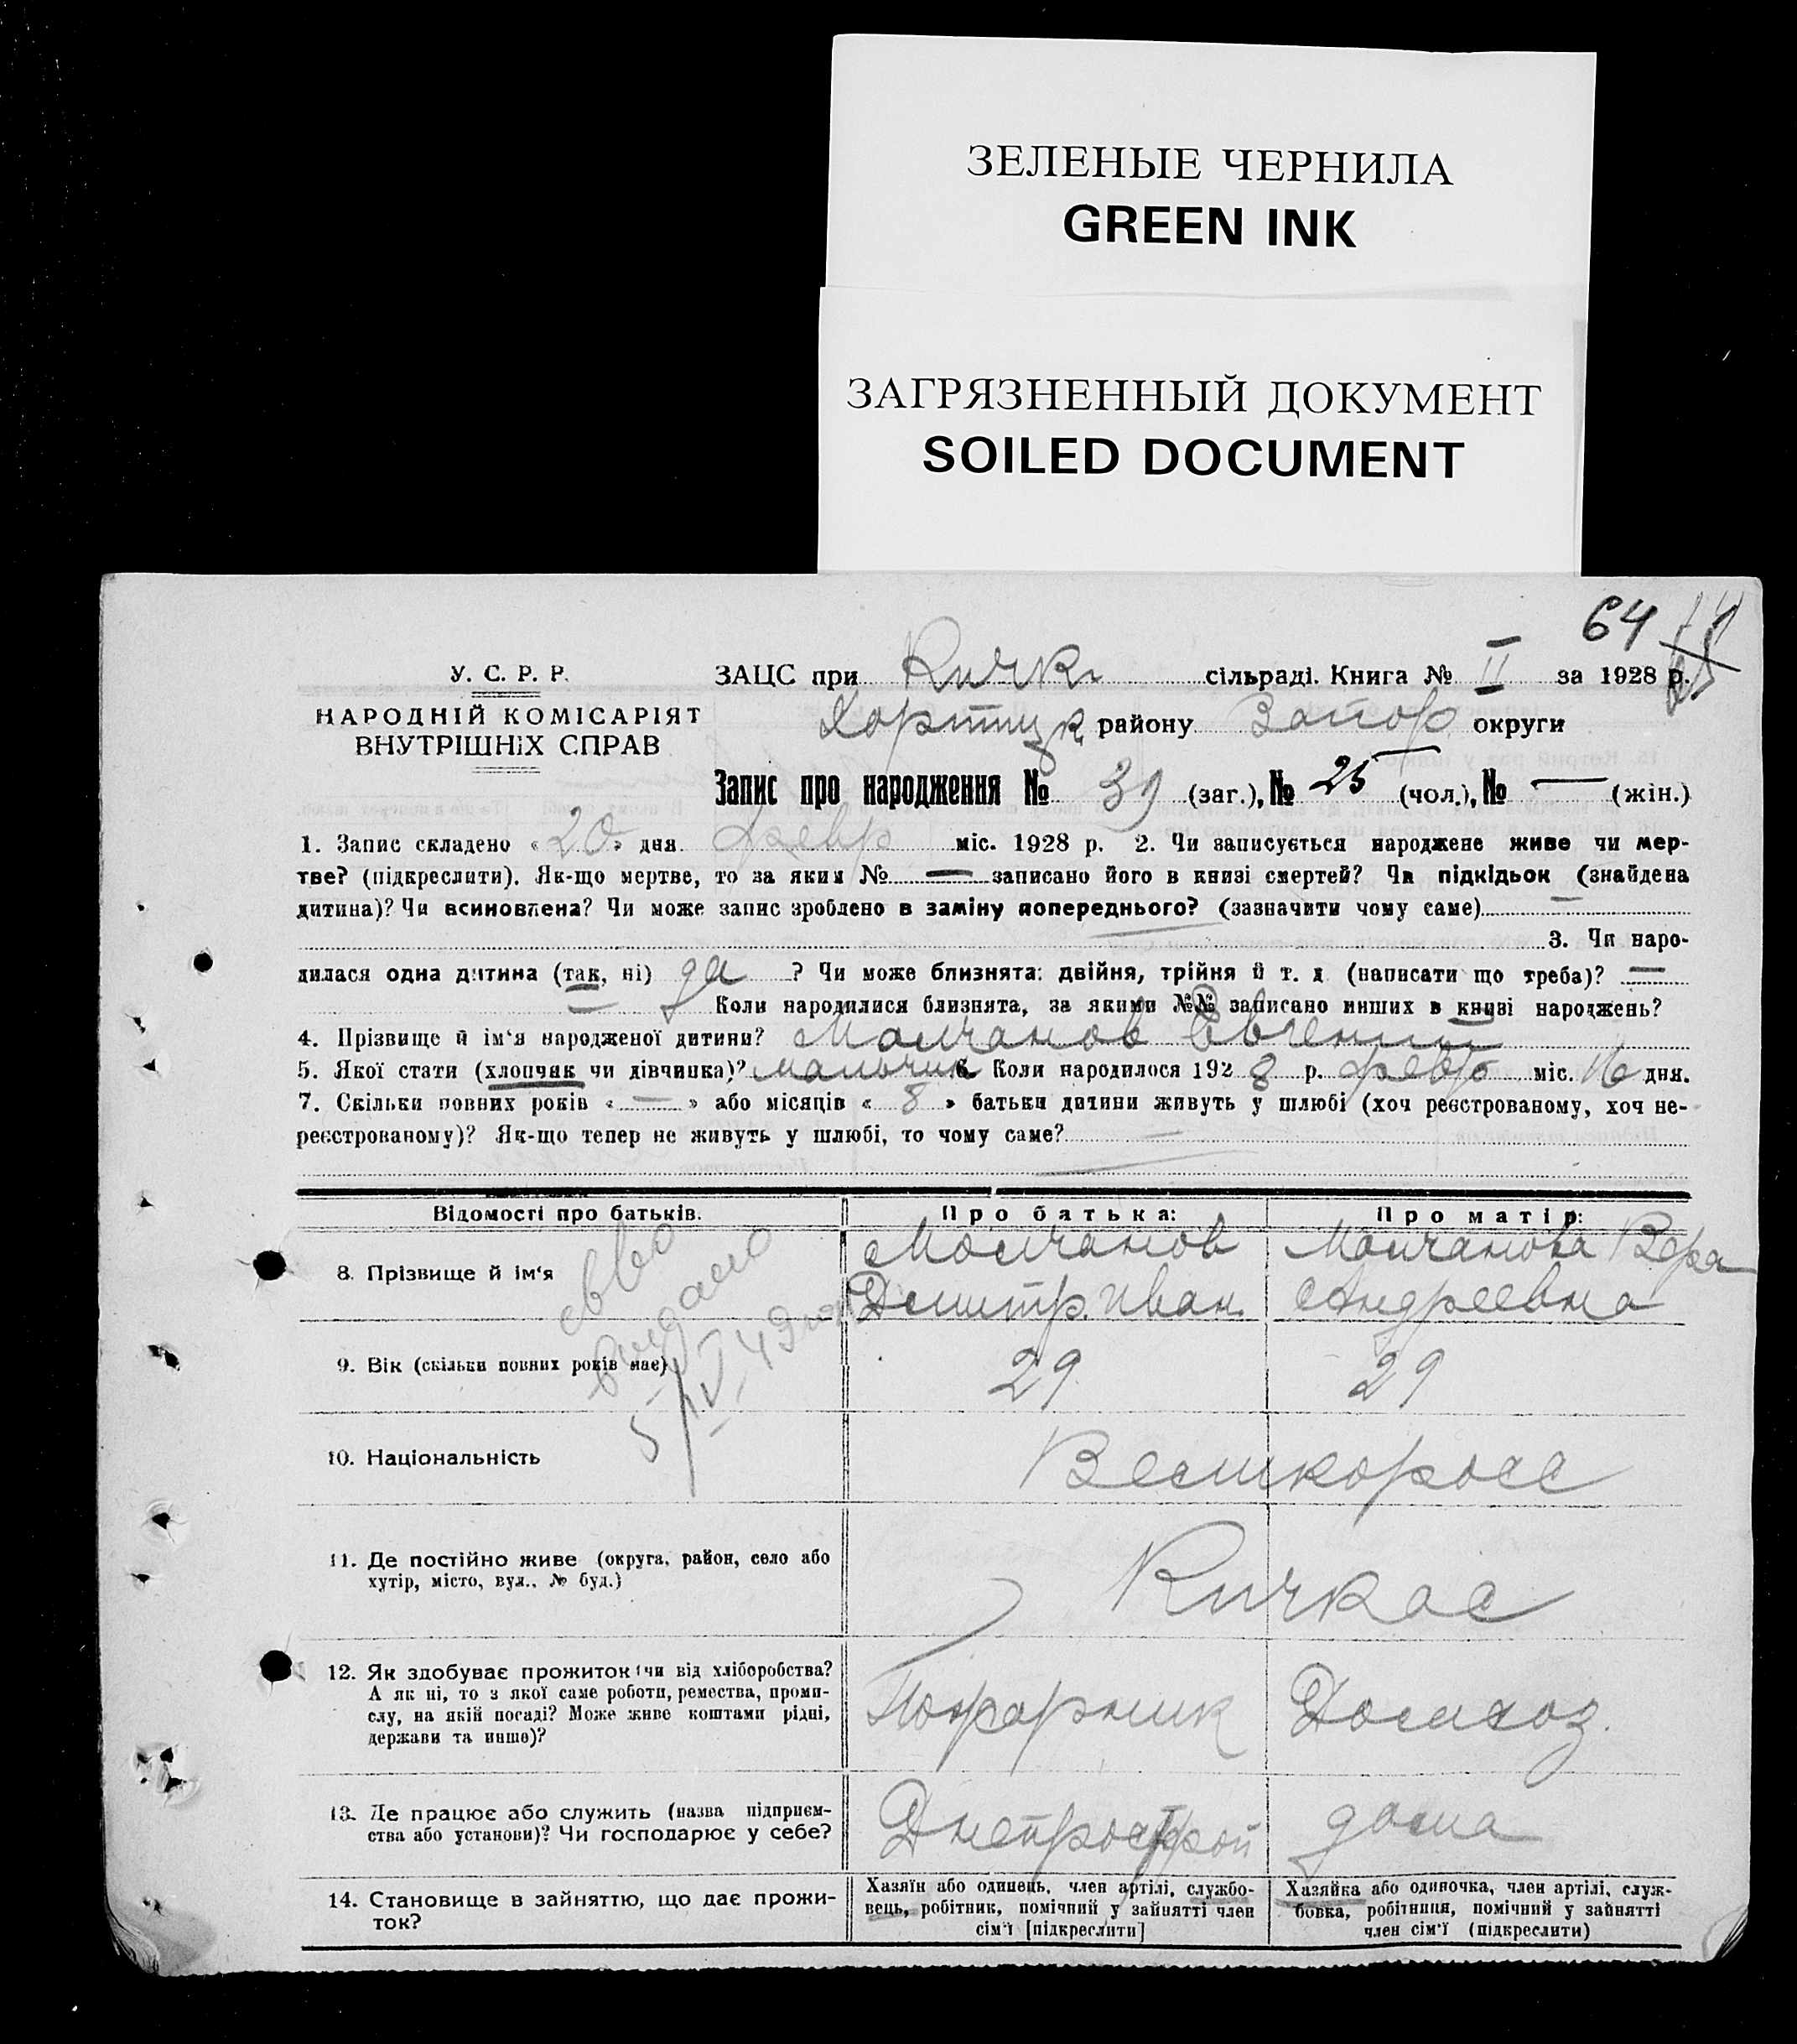 ЗЕЛЕНЫЕ ЧЕРНИЛА
GREEN INK
ЗАГРЯЗНЕННЫЙ ДОКУМЕНТ
SOILED DOCUMENT
64
У. С. Р. Р.
НАРОДНІЙ КОМІСАРІЯТ
ВНУТРІШНІХ СПРАВ
ЗАЦС при Кичк. сільраді. Книга № II за 1928 р.
Хортицк району Запор округи
Запис про народження № 39 (заг.), № 25 (чол.), № — (жін.)
1. Запис складено «20» дня. февр міс. 1928 р. 2. Чи записується народжене живе чи мер-
тве? (підкреслити). Як-що мертве, то за яким № — записано його в книзі смертей? Чи підкідьок (знайдена
дитина)? Чи всиновлена? Чи може запис зроблено в заміну попереднього? (зазначити чому саме) —
3. Чи наро-
дилася одна дитина (так, ні) да ? Чи може близнята: двійня, трійня й т. д (написати що треба)? —
— Коли народилися близнята, за якими №№ записано инших в книзі народжень?
4. Прізвище й ім'я народженої дитини? Молчанов Евгений
5. Якої стати (хлопчик чи дівчинка)? мальчик 6. Коли народилося 1928 р. февр міс. 16 дня.
7. Скільки повних років « — » або місяців « 8 » батьки дитини живуть у шлюбі (хоч реєстрованому, хоч не-
реєстрованому)? Як-що тепер не живуть у шлюбі, то чому саме? —
Відомості про батьків.
Про батька:
Про матір:
8. Прізвище й ім'я
Молчанов
Дмитр. Иван.
Молчанова Вера
Андреевна
выдано
5/IV 49
9. Вік (скільки повних років має)
29
29
10. Національність
Великоросс
11. Де постійно живе (округа, район, село або
хутір, місто, вул., № буд.)
Кичкас
12. Як здобуває прожиток (чи від хліборобства?
А як ні, то з якої саме роботи, ремества, проми-
слу, на якій посаді? Може живе коштами рідні,
держави та инше)?
Пожарник
Домхоз.
13. Де працює або служить (назва підприєм-
ства або установи)? Чи господарює у себе?
Днепрострой
дома
14. Становище в зайняттю, що дає прожи-
ток?
Хазяїн або одинець, член артілі, службо-
вець, робітник, помічний у зайнятті член
сім'ї [підкреслити]
Хазяйка або одиночка, член артілі, служ-
бовка, робітниця, помічний у зайнятті
член сім'ї (підкреслити)